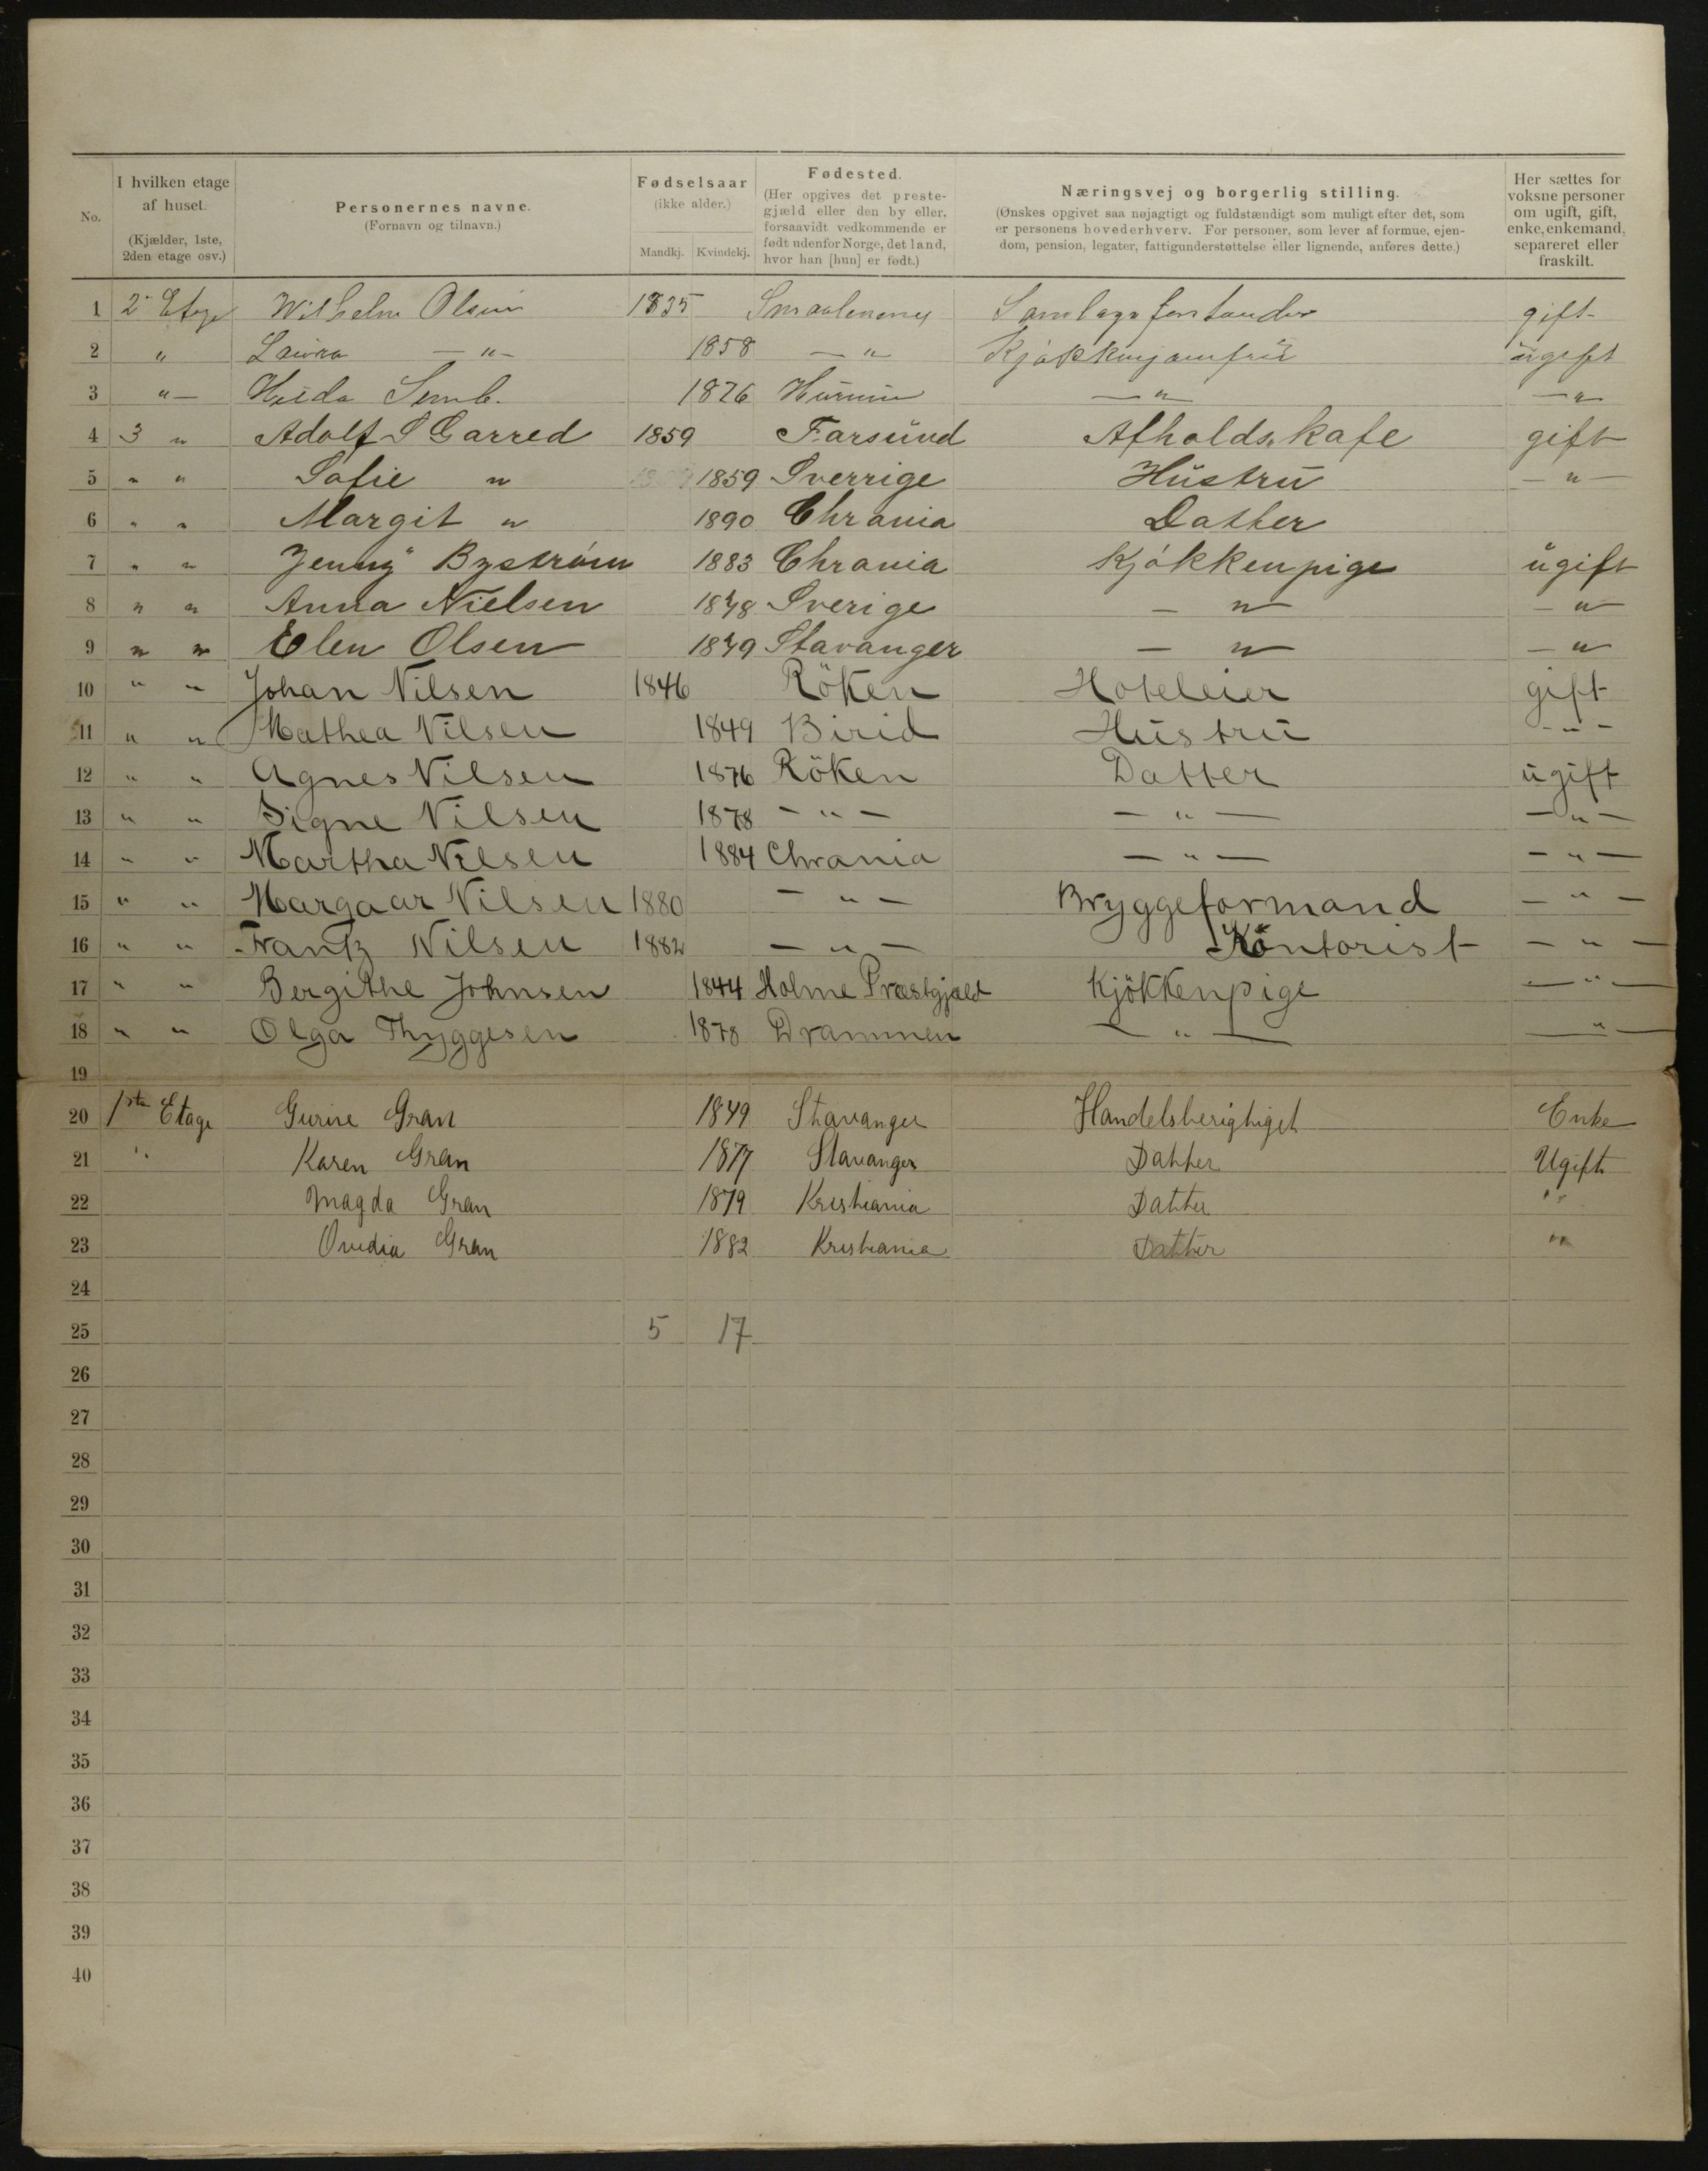 No. I hvilken etage af huset. (Kjælder, 1ste, 2den etage osv.) Personernes navne. (Fornavn og tilnavn.) Fødselsaar (ikke alder.) Mandkj. Kvindekj. Fødested. (Her opgives det prestegjæld eller den by eller, forsaavidt vedkommende er født udenfor Norge, det land, hvor han [hun] er født.) Næringsvej og borgerlig stilling. (Ønskes opgivet saa nøjagtigt og fuldstændigt som muligt efter det, som er personens hovederhverv. For personer, som lever af formue, ejendom, pension, legater, fattigunderstøttelse eller lignende, anføres dette.) Her sættes for voksne personer om ugift, gift, enke, enkemand, separeret eller fraskilt.
1 2 Etage Wilhelm Olsen 1835 Smaalenene Samlagsforstander gift
2 " Laura — " — 1858 — " Kjøkkenjomfru ugift
3 " — Semb. 1876 Hurum — " — "
4 3 " Adolf S Garred 1859 Farsund Afholds.kafe gift
5 " " Sofie " 1859 Sverrige Hustru — " —
6 " " Margit " 1890 Chrania Datter
7 " " Jenny Byström 1883 Chrania Kjøkkenpige ugift
8 " " Anna Nielsen 1878 Sverige — " — "
9 " " Elen Olsen 1879 Stavanger — " — "
10 " " Johan Nilsen 1846 Röken Hoteleier gift
11 " " Mathea Nilsen 1849 Birid Hustru - " -
12 " " Agnes Nilsen 1876 Röken Datter ugift
13 " " Signe Nilsen 1878 - " - — " — — " —
14 " " Martha Nilsen 1884 Chrania — " — — " —
15 " " Margaar Nilsen 1880 - " - Bryggeformand — " —
16 " " Frantz Nilsen 1882 — " — Kontorist — " —
17 " " Bergithe Johnsen 1844 Holme Præstgjæld Kjökkenpige — " —
18 " " Olga Thyggesen 1878 Drammen — " — — " —
19
20 1ste Etage Gurine Gran 1849 Stavanger Handelsberigtiget Enke
21 " Karen Gran 1877 Stavanger Datter Ugift
22 Magda Gran 1879 Kristiania Datter "
23 Ovidia Gran 1882 Kristiania Datter "
24
25 5 17
26
27
28
29
30
31
32
33
34
35
36
37
38
39
40